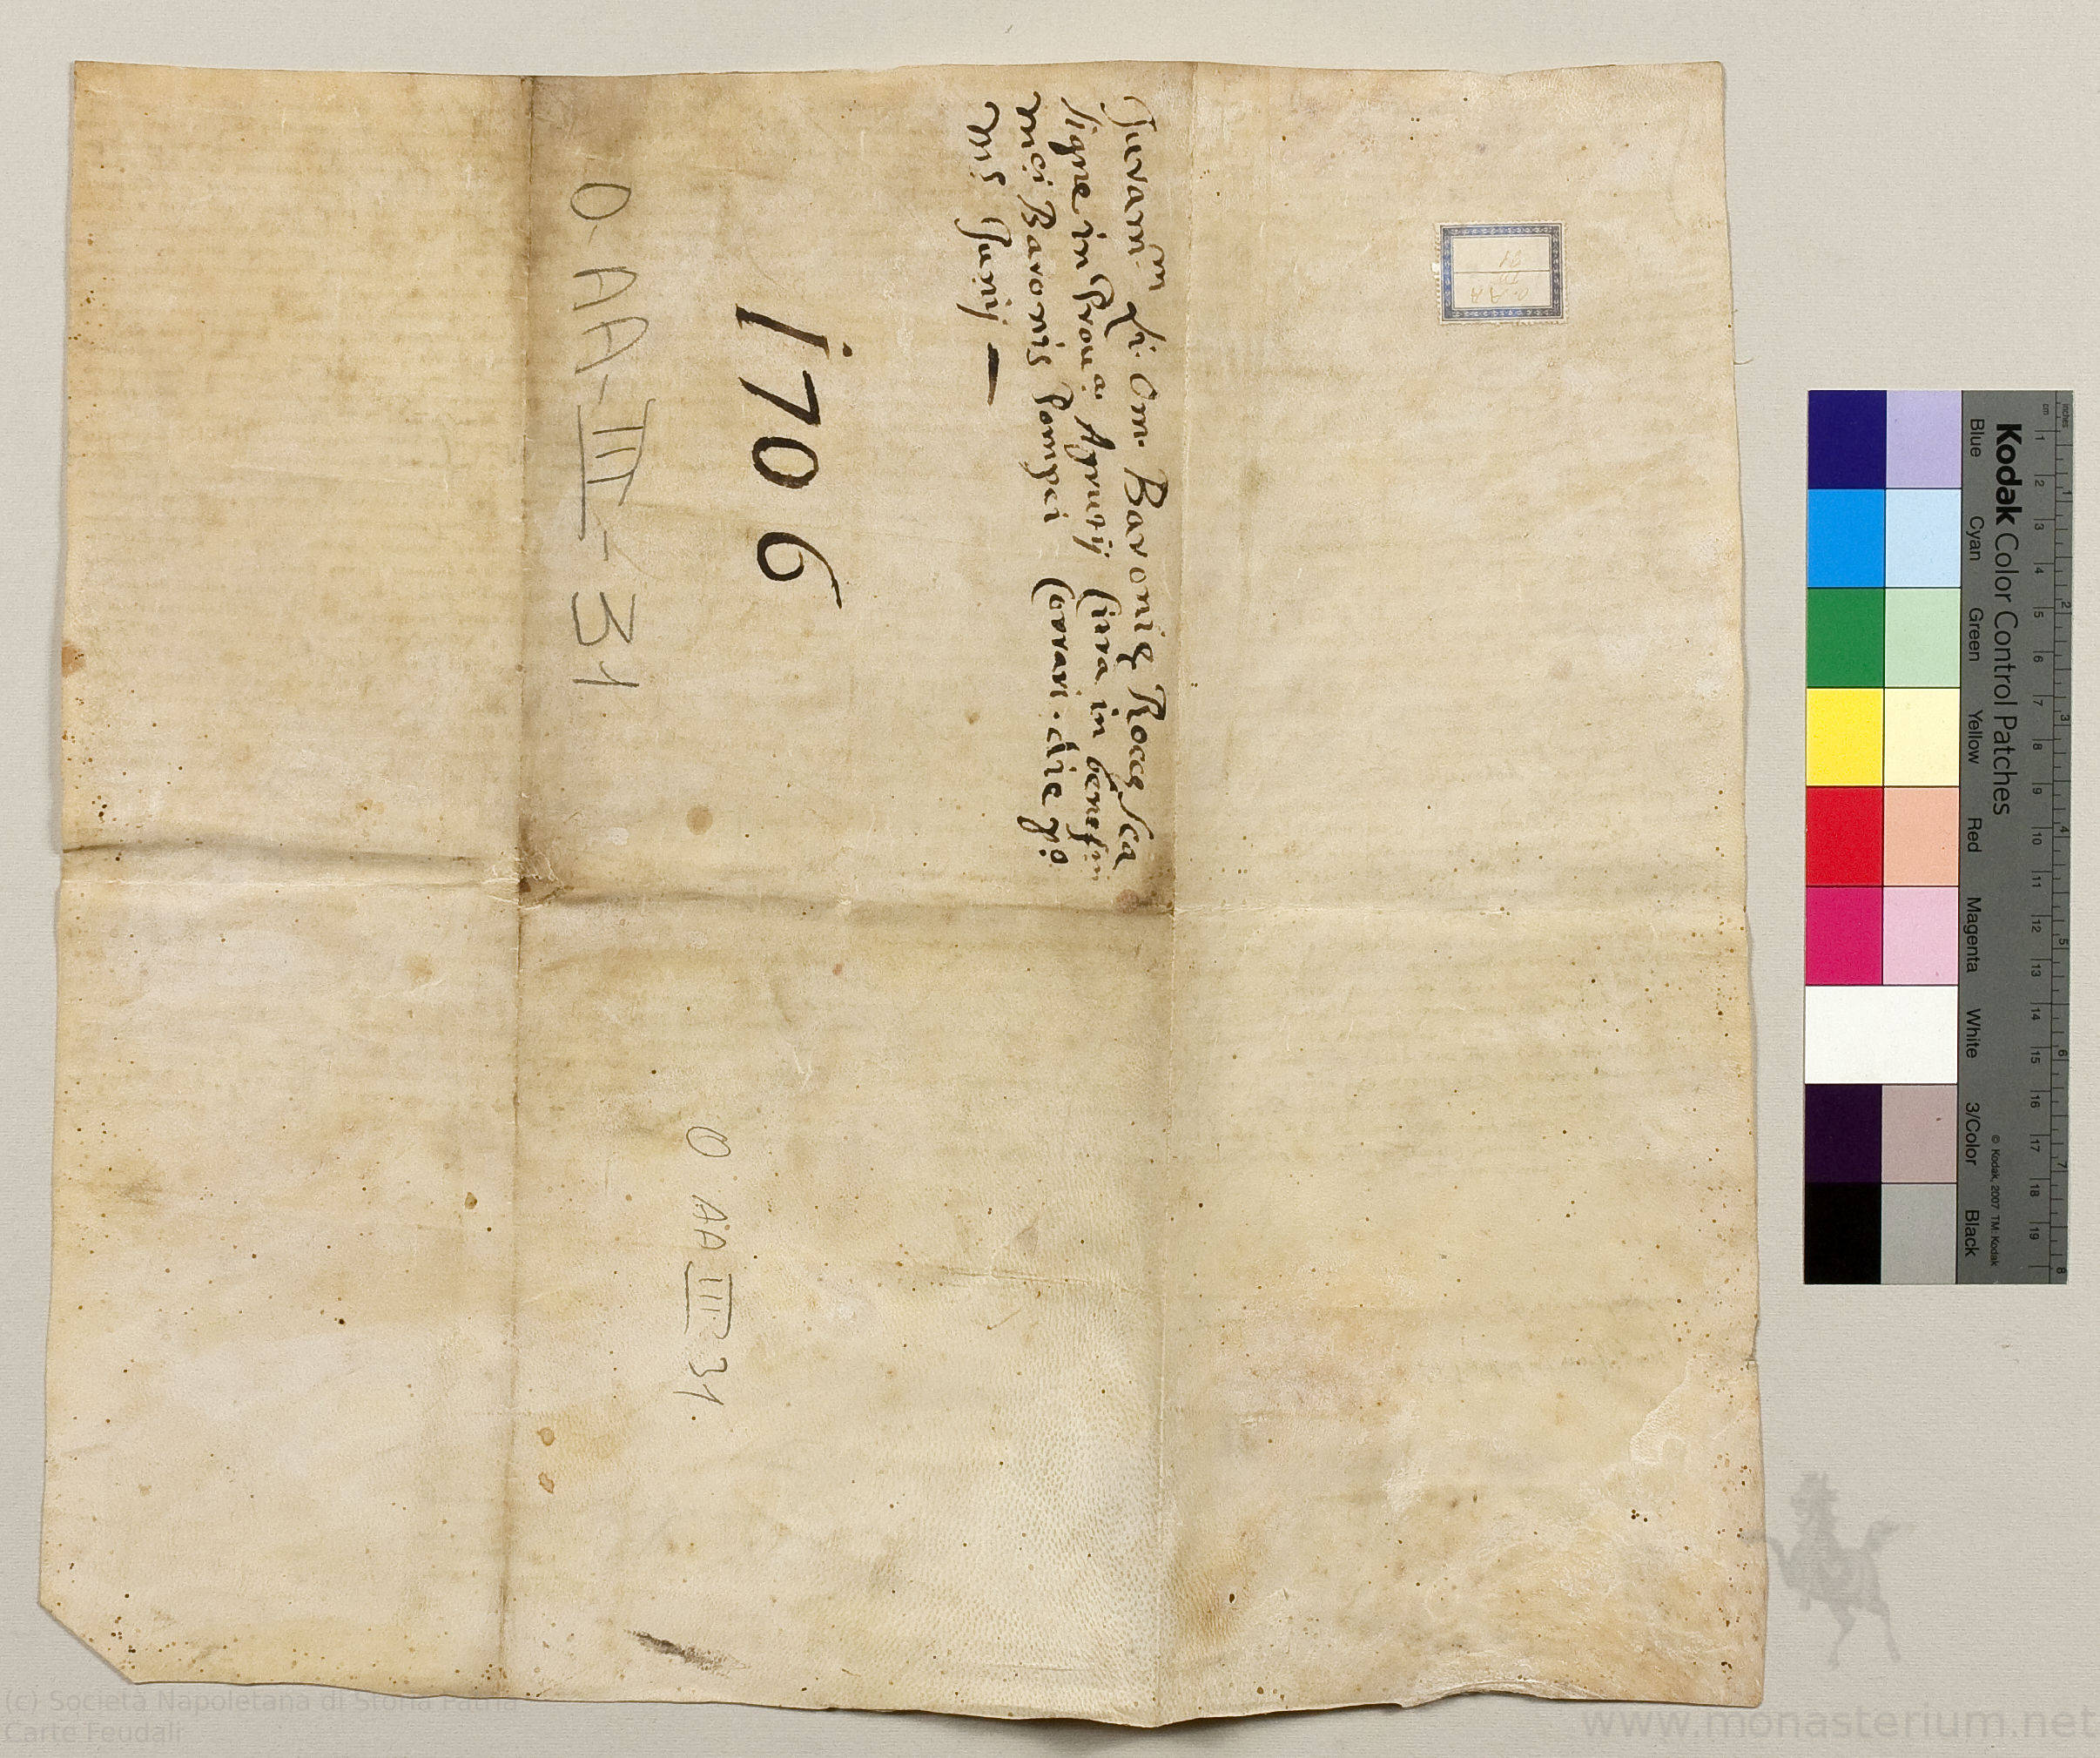 Iuram.m Li. Om. Baronię Roccę Sca
signe in Prou.a Aprutij Citra in benefm
mci Baronis Pompei Corrari. die p.o
mis Junij —
1706
O. AA-III-31
O AA III 31.
Kodak Color Control Patches
Blue Cyan Green Yellow Red Magenta White 3/Color Black
© Kodak, 2007 TM: Kodak
inches 1 2 3 4 5 6 7 8
cm 1 2 3 4 5 6 7 8 9 10 11 12 13 14 15 16 17 18 19
(c) Società Napoletana di Storia Patria
Carte Feudali
www.monasterium.net